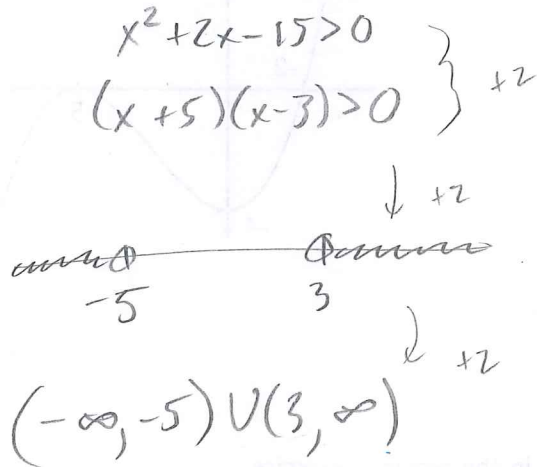 x²+2x-15>0
(x+5)(x-3)>0 } +2
↓ +2
-5 3
↓ +2
(-∞,-5)∪(3,∞)